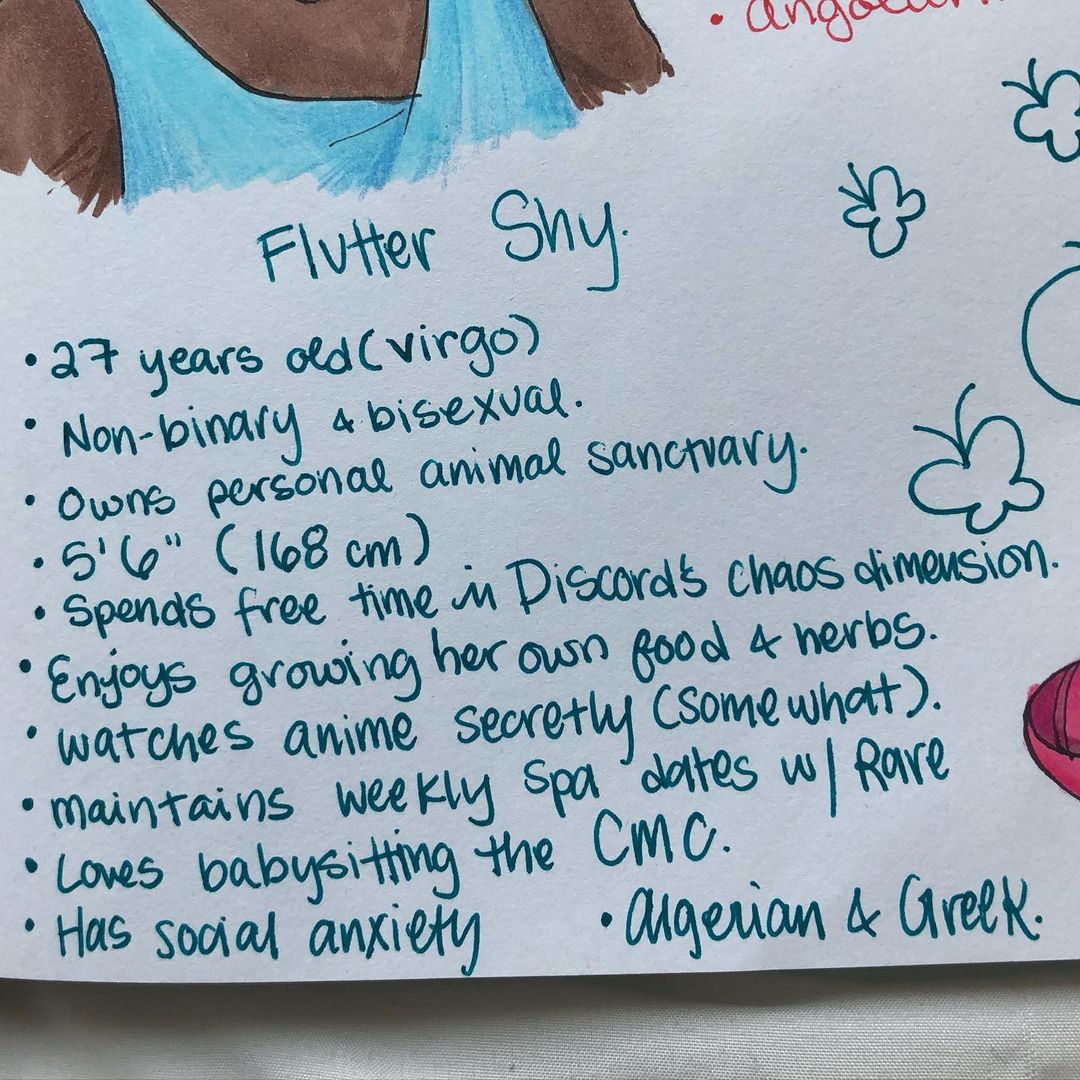 Flutter Shy.
• 27 years old (virgo)
• Non-binary & bisexual.
• Owns personal animal sanctuary.
• 5'6" (168 cm)
• Spends free time in Discord's chaos dimension.
• Enjoys growing her own food & herbs.
• watches anime secretly (somewhat).
• maintains weekly spa dates w/ Rare
• Loves babysitting the CMC.
• Has social anxiety
• Algerian & Greek.